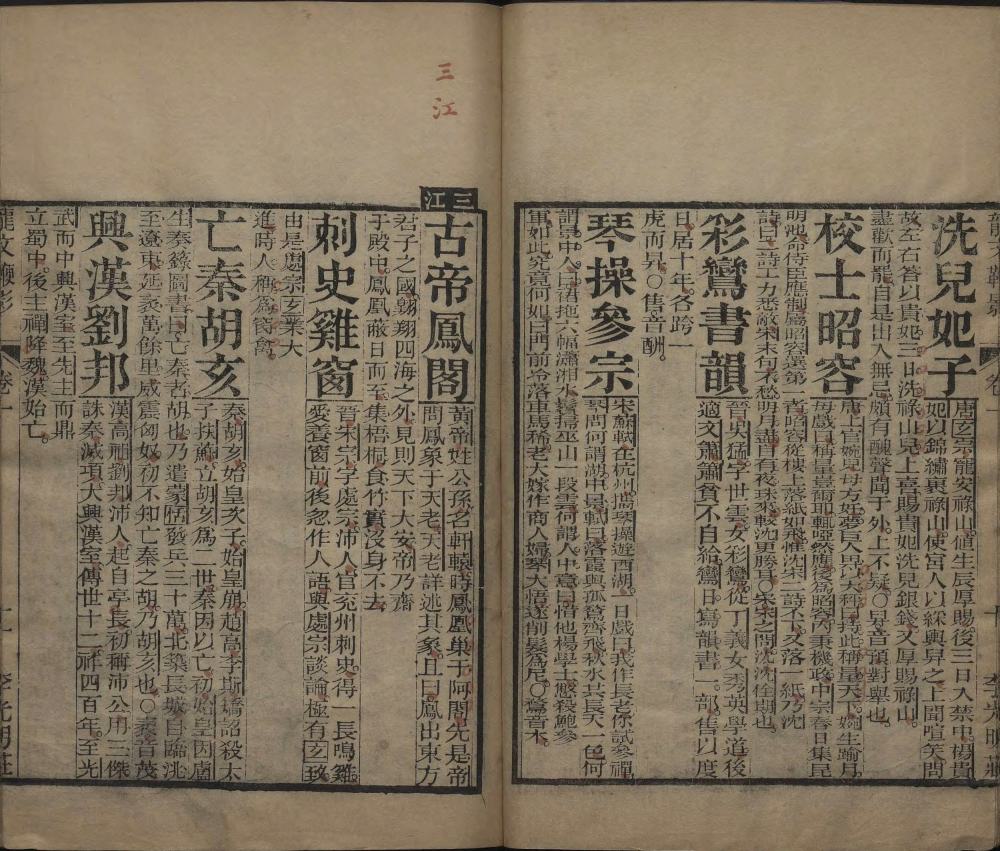 龍文鞭影 卷一 十 李光明莊
洗兒妃子
唐玄宗寵安祿山値生辰厚賜後三日入禁中楊貴
妃以錦繡裹祿山使宮人以綵輿舁之上聞喧笑問
故左右答以貴妃三日洗祿山兒上喜賜貴妃洗兒銀錢又厚賜祿山
盡歡而罷自是出入無忌頗有醜聲聞于外上不疑〇舁音預對舉也
校士昭容
唐上官婉兒母方娠夢巨人畀大秤曰持此稱量天下婉生踰月
母戲曰稱量者爾耶輒啞然應後爲昭容內秉機政中宗春日集昆
明池命侍臣應制屬昭容選第一者昭容從樓上落紙如飛惟沈宋二詩不下又落一紙乃沈
詩曰二詩工力悉敵宋末句不愁明月盡自有夜珠來較沈更勝耳〇宋宋之問沈沈佺期也
彩鸞書韻
晉吳猛字世雲女彩鸞從丁義女秀英學道後
適文簫簫貧不自給鸞日寫韻書一部售以度
日居十年各跨一
虎而昇〇售音酬
琴操參宗
宋蘇軾在杭州攜琴操遊西湖一日戲曰我作長老你試參禪
琴問何謂湖中景軾曰落霞與孤鶩齊飛秋水共長天一色何
謂景中人曰裙拖六幅瀟湘水鬢掃巫山一段雲何謂人中意曰惜他楊學士憋殺鮑參
軍如此究竟何如曰門前冷落車馬稀老大嫁作商人婦琴大悟遂削髮爲尼〇鶩音木
三江
三江
古帝鳳閣
黃帝姓公孫名軒轅時鳳凰巢于阿閣先是帝
問鳳象于天老天老詳述其象且曰鳳出東方
君子之國翱翔四海之外見則天下大安帝乃齋
于殿中鳳凰蔽日而至集梧桐食竹實沒身不去
刺史雞窗
晉朱宗字處宗沛人官兗州刺史得一長鳴雞
愛養窗前後忽作人語與處宗談論極有玄致
由是處宗玄業大
進時人稱爲窗禽
亡秦胡亥
秦胡亥始皇次子始皇崩趙高李斯矯詔殺太
子扶蘇立胡亥爲二世秦因以亡初始皇因盧
生奏籙圖書曰亡秦者胡也乃遣蒙恬發兵三十萬北築長城自臨洮
至遼東延袤萬餘里威震匈奴初不知亡秦之胡乃胡亥也〇袤音茂
興漢劉邦
漢高祖劉邦沛人起自亭長初稱沛公用三傑
誅秦滅項大興漢室傳世十二祚四百年至光
武而中興漢室至先主而鼎
立蜀中後主禪降魏漢始亡
龍文鞭影 卷一 十一 李光明莊